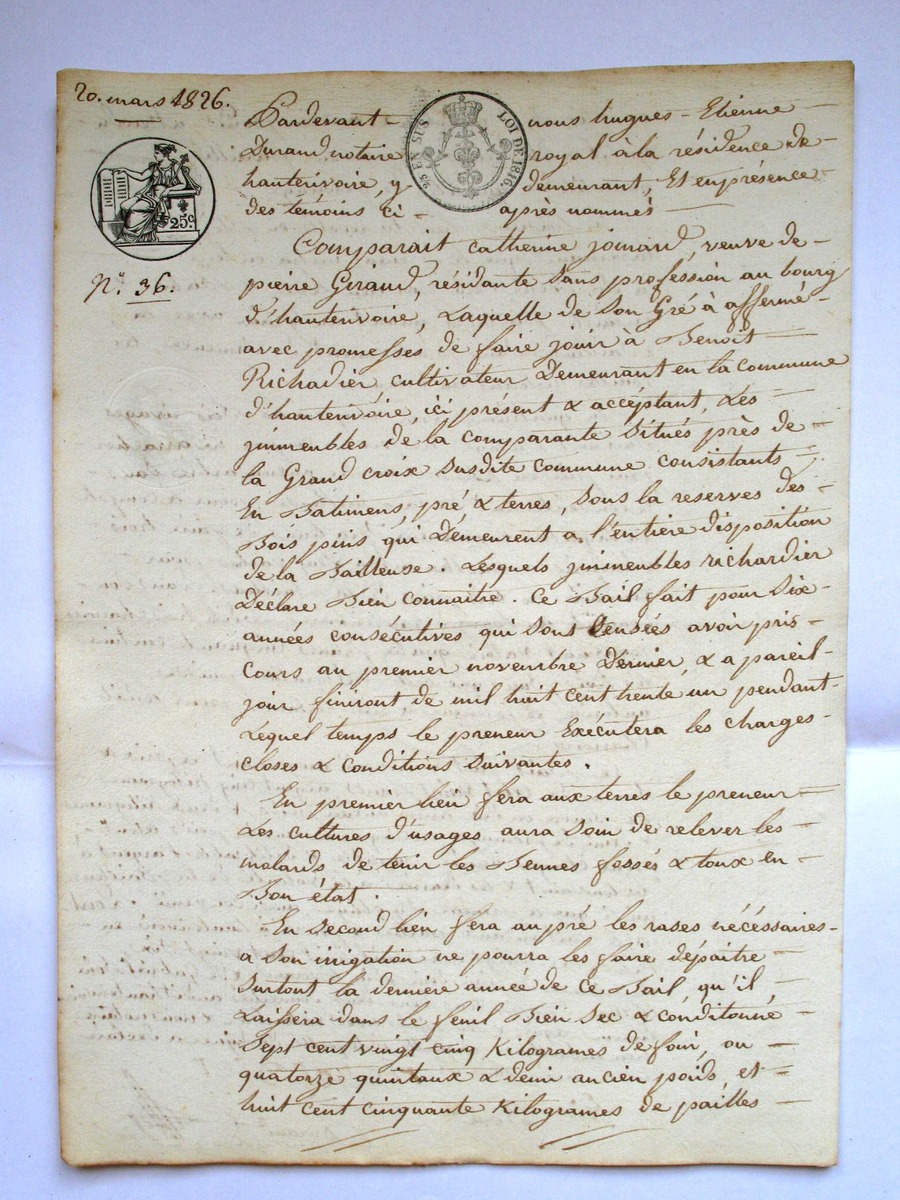 20. mars 1826.
25 EN SUS LOI DE 1816.
25c
N.° 36.
Pardevant nous hugues-Etienne
Durand notaire royal à la résidence de
hauterivoire, y demeurant, Et en présence
des témoins ci-après nommés
Comparait Catherine jomard, veuve de
pierre Giraud, résidante sans profession au bourg
d'hauterivoire, Laquelle de son Gré à affermé
avec promesses de faire jouir à Benoit
Richadier cultivateur Demeurant en la commune
d'hauterivoire, ici présent & accéptant, Les
jmmeubles de la comparante situés près de
la Grand croix susdite commune consistants
En Batimens, pré, & terres, sous la reserves des
Bois pins qui Demeurent a l'entière disposition
de la Bailleuse. Lesquels jmmeubles richardier
Déclare Bien connaitre. Ce Bail fait pour six
années consécutives qui sont Censées avoir pris
Cours au premier novembre Dernier, & a pareil
jour finiront de mil huit cent trente un pendant
Lequel temps le preneur Exécutera les charges
closes & conditions suivantes.
En premier lieu fera aux terres le preneur
Les cultures d'usages aura soin de relever les
molards de tenir les Bennes fossés & toux en
Bon état.
En second lieu fera au pré les rases nécéssaires
a son irrigation ne pourra les faire dépaitre
surtout la dernière année de ce Bail, qu'il
Laissera dans le fenil Bien sec & conditonné
sept cent vingt cinq Kilogrames de foin, ou
quatorze quintaux & demi ancien poids, et
huit cent cinquante Kilogrames de pailles